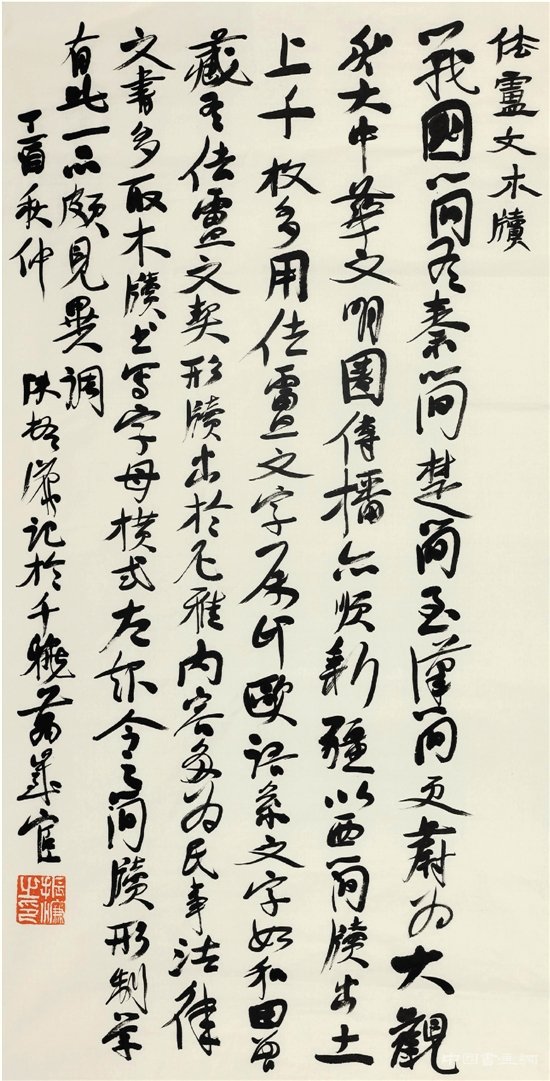 佉盧文木牘
戰國簡有秦簡楚簡至漢簡更蔚為大觀
大中華文明圈傳播亦順新疆以西簡牘出土
上千枚多用佉盧文字屬印歐語系文字如和田曾
藏有佉盧文契形牘出於尼雅內容多為民事法律
文書多取木牘書寫字母橫式左行今之簡牘形制僅
有此一品頗見異調
丁酉秋仲
陳振濂記於千曉薌館